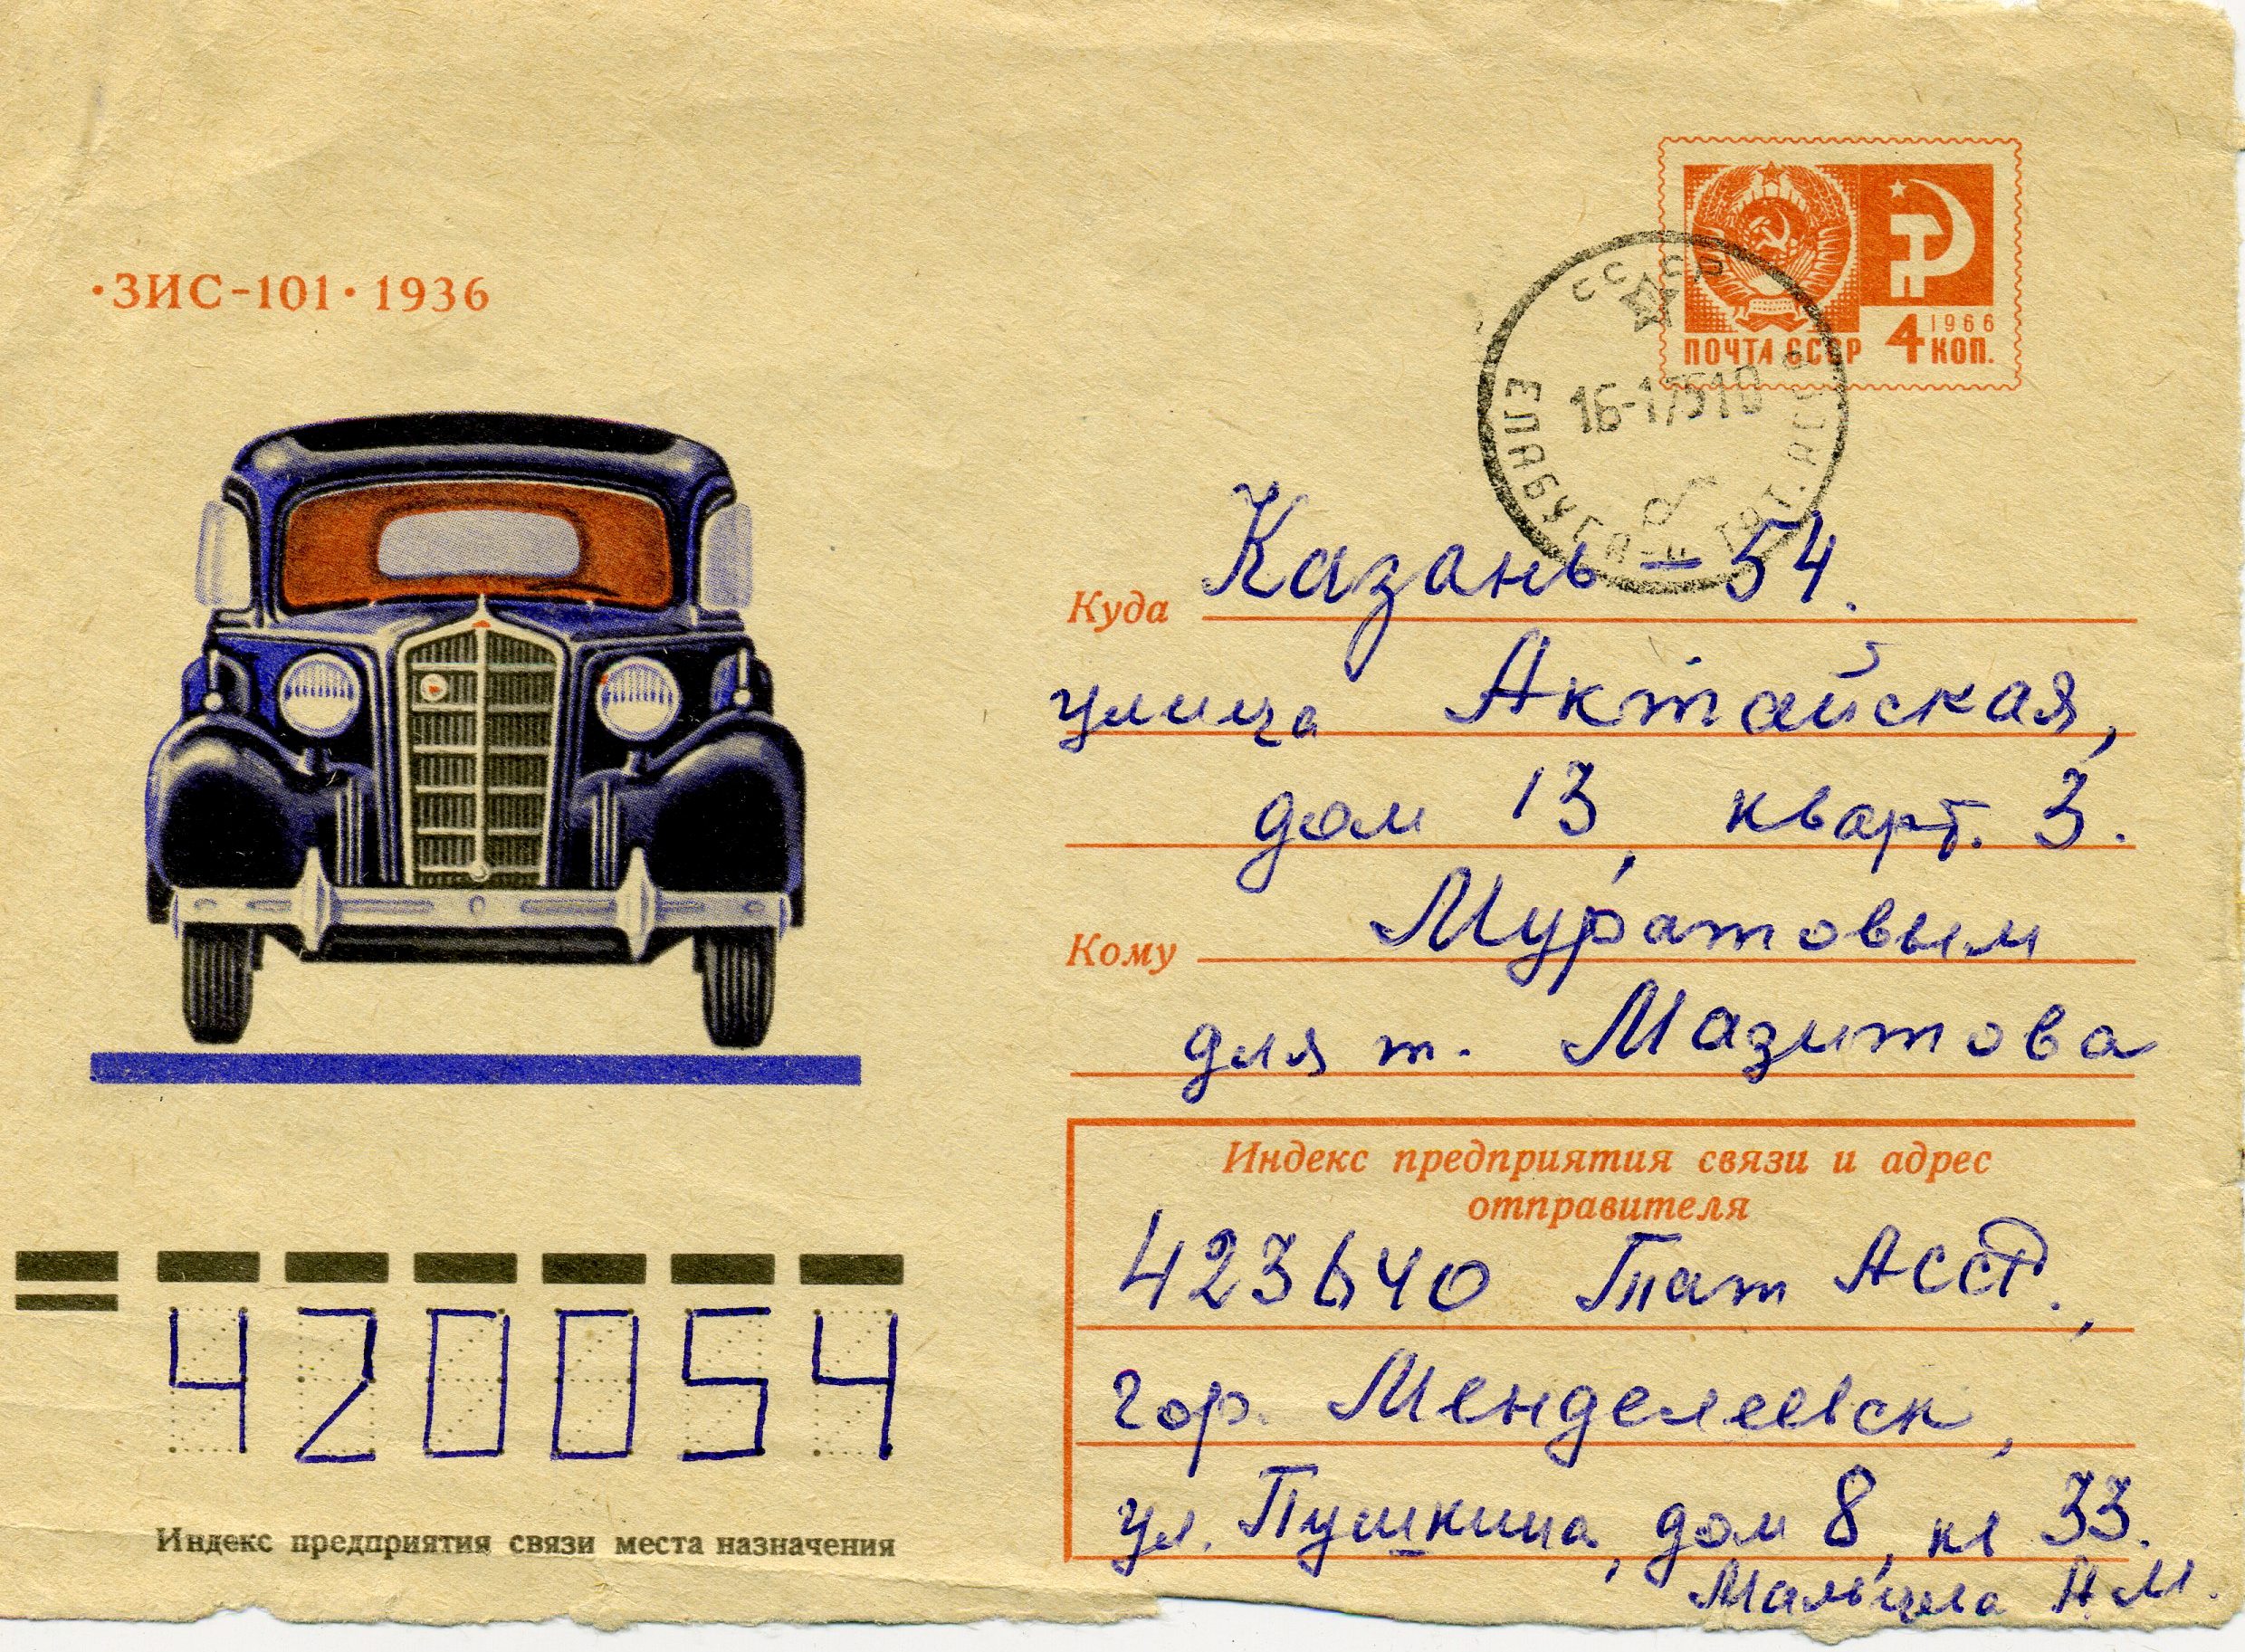 ·ЗИС-101·1936
1966
ПОЧТА СССР 4 КОП.
16-1 75 10
ЕЛАБУГА
Куда Казань – 54.
улица Актайская,
дом 13, кварт. 3.
Кому Муратовым
для т. Мазитова
Индекс предприятия связи и адрес
отправителя
423640 Тат АССР,
гор. Менделеевск,
ул. Пушкина, дом 8, кв 33.
Мальцева Н.М.
420054
Индекс предприятия связи места назначения